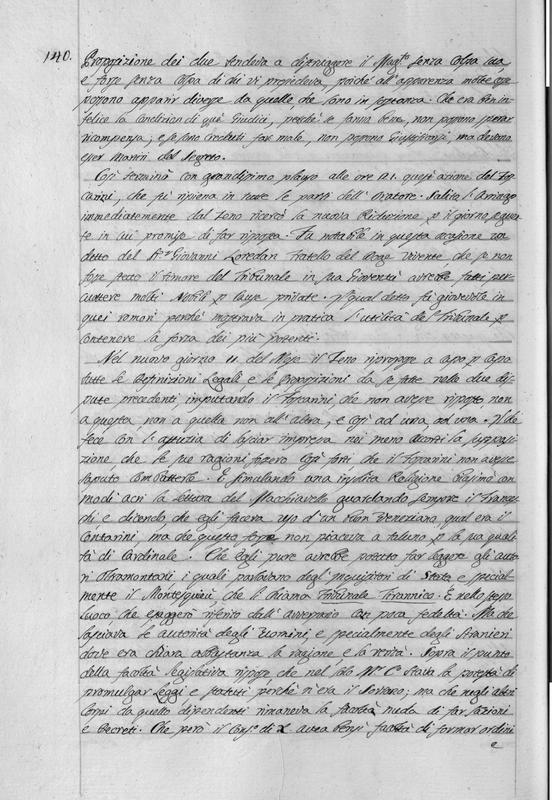 140.
Proposizione dei due tendeva a distruggere il Mag.to senza colpa sua
e forse senza colpa di chi vi presiedeva, poiché all'apparenza molte cose
possono apparir diverse da quelle che sono in sostanza. Che era ben in-
felice la condizion di que' Giudici, perché se fanno bene, non possono sperar
ricompensa; e se sono creduti far male, non possono giustificarsi, ma devono
esser Martiri del segreto.
Così terminò con grandissimo plauso alle ore 21. quest'azione del Fo-
scarini, che fù ripiena in tutte le parti dell'Oratore. Salito l'Arringo
immediatemente dal Zeno ricercò la nuova Riduzione p il giorno segue-
te in cui promise di far risposta. Fu notabile in questa occasione un
detto del K.r Giovanni Loredan fratello del Doge vivente che se non
fosse stato il timore del Tribunale in sua Gioventù avrebbe fatti per-
cuotere molti Nobili p cause private. Il qual detto fù giovevole in
quei rumori perché mostrava in pratica l'utilità del Tribunale p
contenere la forza dei più potenti.
Nel nuovo giorno 11 del Mese il Zeno ripropose a capo p capo
tutte le Definizioni Legali e le proposizioni da se fatte nelle due dis-
pute precedenti, imputando il Foscarini, che non avesse risposto, non
a questa, non a quella non all'altra, e così ad una, ad una. Il che
fece con l'astuzia di lasciar impressa nei meno accorti la supposi-
zione che le sue ragioni fossero così forti che il Foscarini non avesse
saputo combatterle. E simulando una insolita Religione biasimò con
modi acri la lettura del Macchiavello guardando sempre il France-
chi e dicendo, che egli faceva uso d'un buon Veneziano qual era il
Contarini, ma che questo forse non piaceva a taluno p la sua quali-
tà di Cardinale. Che Egli pure avrebbe potuto far leggere gli auto-
ri Oltramontani i quali parlavano degl'Inquisitori di Stato e special-
mente il Montesquieù che li chiama Tribunale Tirannico. E nello stesso
luoco che esaggerò riferito dall'avversario con poca fedeltà. Ma che
lasciava le autorità degli Uomini, e specialmente degli Stranieri
dove era chiara abbastanza la ragione e la verità. Sopra il punto
della facoltà legislativa rispose che nel solo M.r C.o stava la potestà di
promulgar Leggi e statuti perché n'era il Sovrano; ma che negli altri
Corpi da quello dipendenti rimaneva la facoltà nuda di far
e Decreti. Che però il Cons.o di X avea bensì facoltà di formar ordini
e